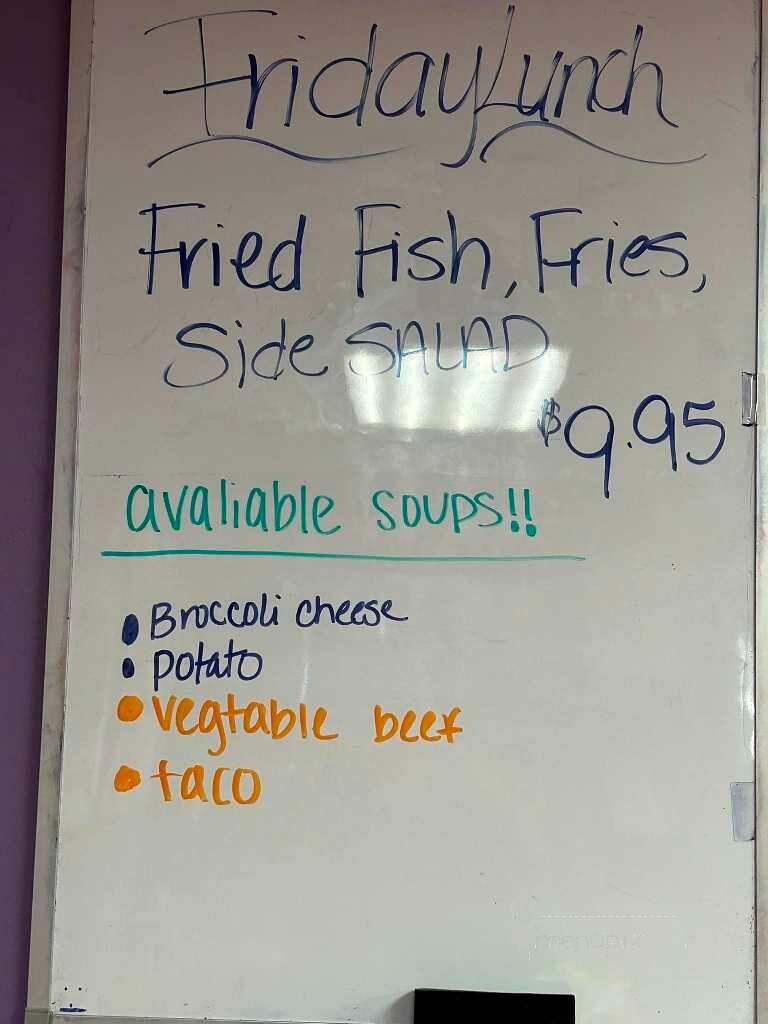 Friday Lunch
Fried Fish, Fries,
Side SALAD
$9.95
avaliable soups!!
• Broccoli cheese
• potato
• vegtable beef
• taco